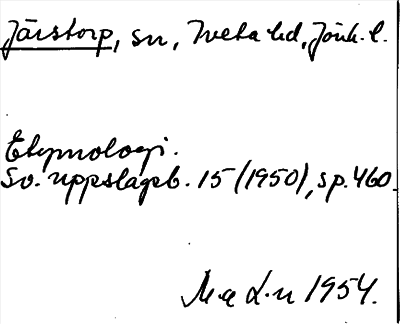 Järstorp, sn, Tveta hd, Jönk. l.
Etymologi.
Sv. uppslagsb. 15 (1950), sp. 460.
M-a L-n 1954.